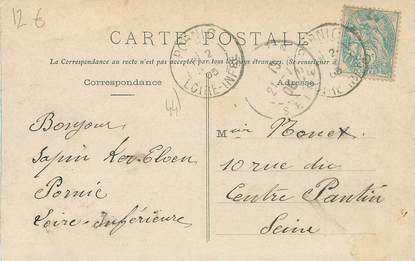 12 €
CARTE POSTALE
La Correspondance au recto n'est pas acceptée par tous les pays étrangers. (Se renseigner à
Correspondance
Adresse
PORNIC
LOIRE-INFRE
44
Bonjour
Sapin Ker-Elven
Pornic
Loire-Inférieure
Mr
10 rue du
Centre Pantin
Seine